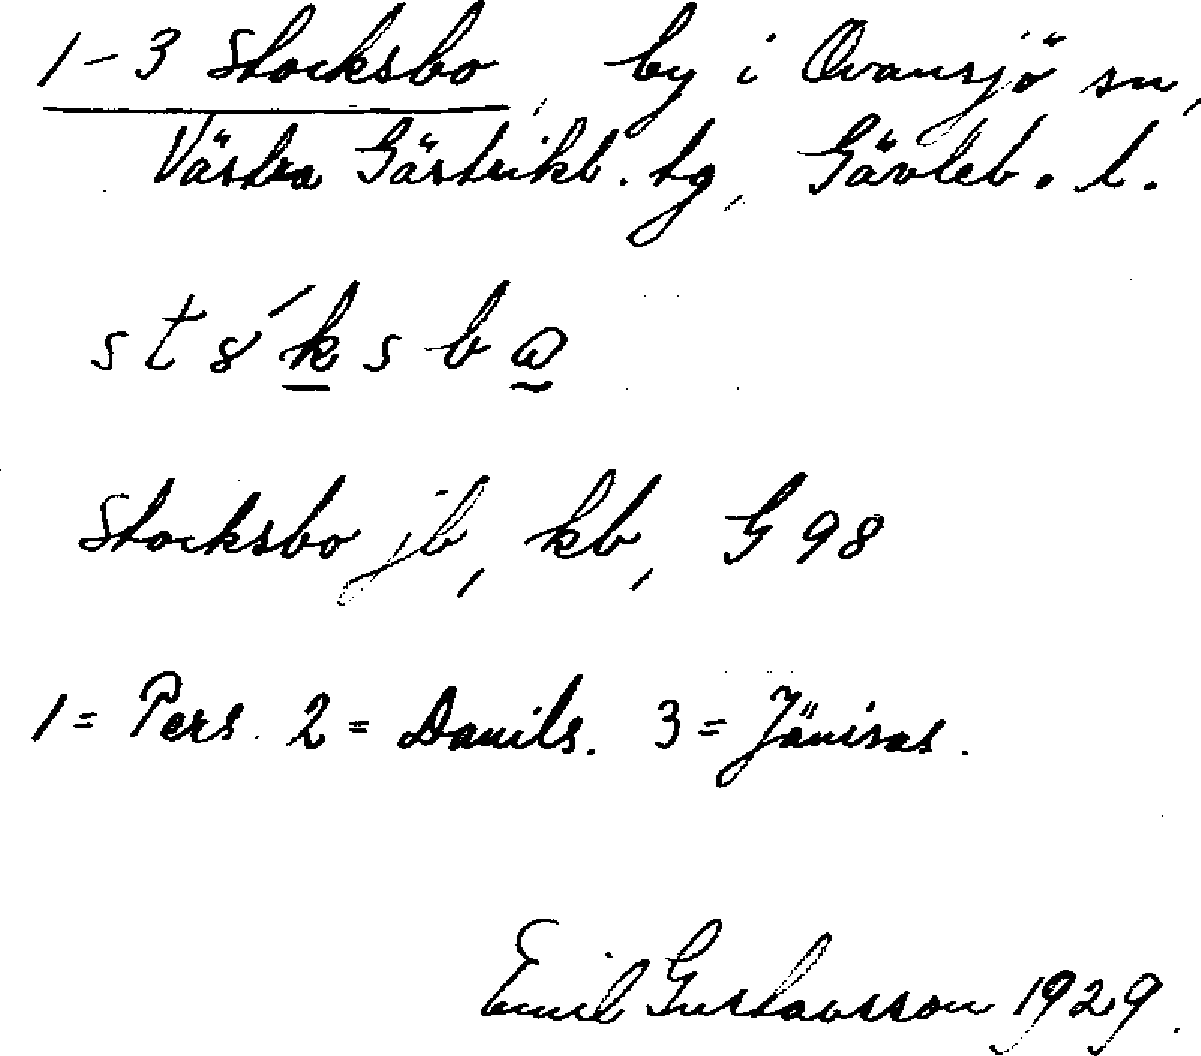 1-3 Stocksbo, by i Ovansjö sn,
Västra Gästrikl. tg, Gävleb. l.
st8́ksbω
Stocksbo jb, kb, G 98
1 = Pers. 2 = Danils. 3 = Jänisas.
Emil Gustavsson 1929.